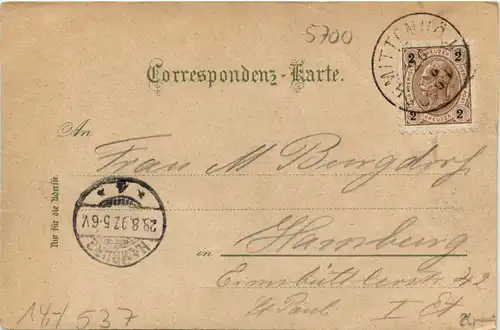 5700
MITTENWALD
2 2
KREUZER
2 2
Correspondenz-Karte.
An
Frau M Burgdorf
Nur für die Adresse.
28.8.97.5-6V.
HAMBURG
in Hamburg
Eimsbüttlerstr 42
St Pauli I Et.
537